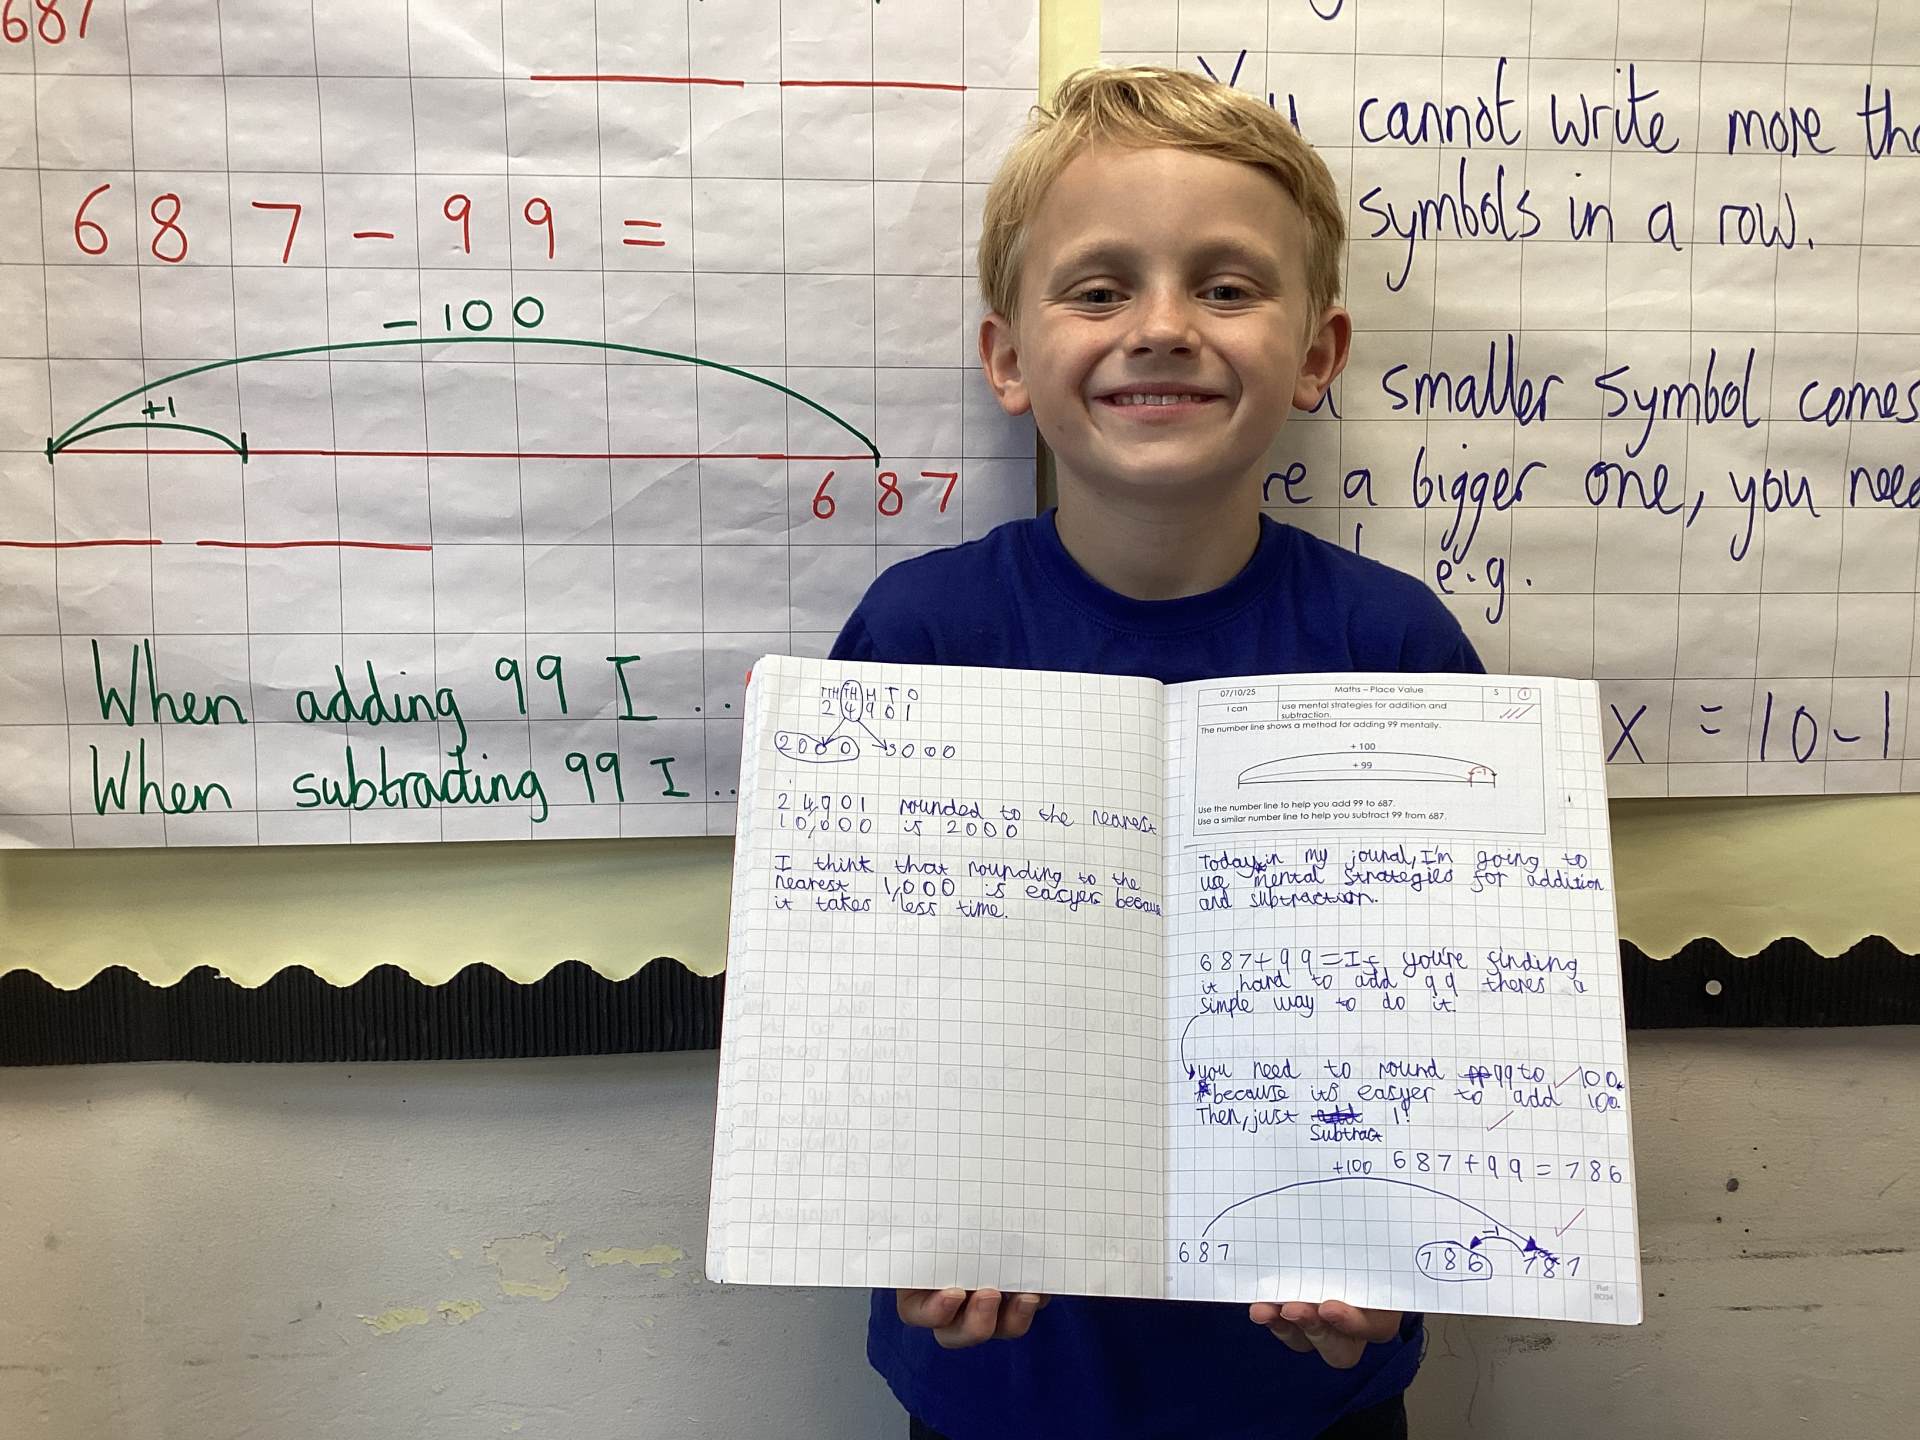 687
687-99=
-100
+1
687
When adding 99 I ..
When subtracting 99 I ..
cannot write more
symbols in a row.
smaller symbol comes
a bigger one, you need
e.g.
X = 10-1
TTH TH H T O
2 4 9 0 1
2000 3000
24,901 rounded to the nearest
10,000 is 2000
I think that rounding to the
nearest 1,000 is easyer because
it takes less time.
07/10/25 Maths – Place Value S 1
I can use mental strategies for addition and
subtraction.
The number line shows a method for adding 99 mentally.
+ 100
+ 99
-1
Use the number line to help you add 99 to 687.
Use a similar number line to help you subtract 99 from 687.
Today in my jounal, I'm going to
use mental strategies for addition
and subtraction.
687+99=If you're finding
it hard to add 99 theres a
simple way to do it.
you need to round 99 to 100.
because its easyer to add 100.
Then, just add 1!
Subtract
+100 687+99=786
-1
687 786 787